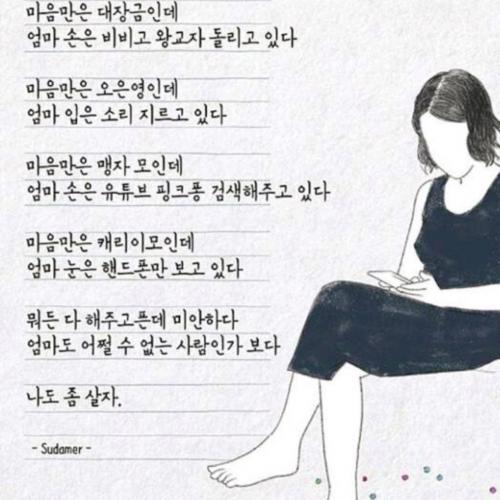 마음만은 대장금인데
엄마 손은 비비고 왕교자 돌리고 있다
마음만은 오은영인데
엄마 입은 소리 지르고 있다
마음만은 맹자 모인데
엄마 손은 유튜브 핑크퐁 검색해주고 있다
마음만은 캐리이모인데
엄마 눈은 핸드폰만 보고 있다
뭐든 다 해주고픈데 미안하다
엄마도 어쩔 수 없는 사람인가 보다
나도 좀 살자.
- Sudamer -